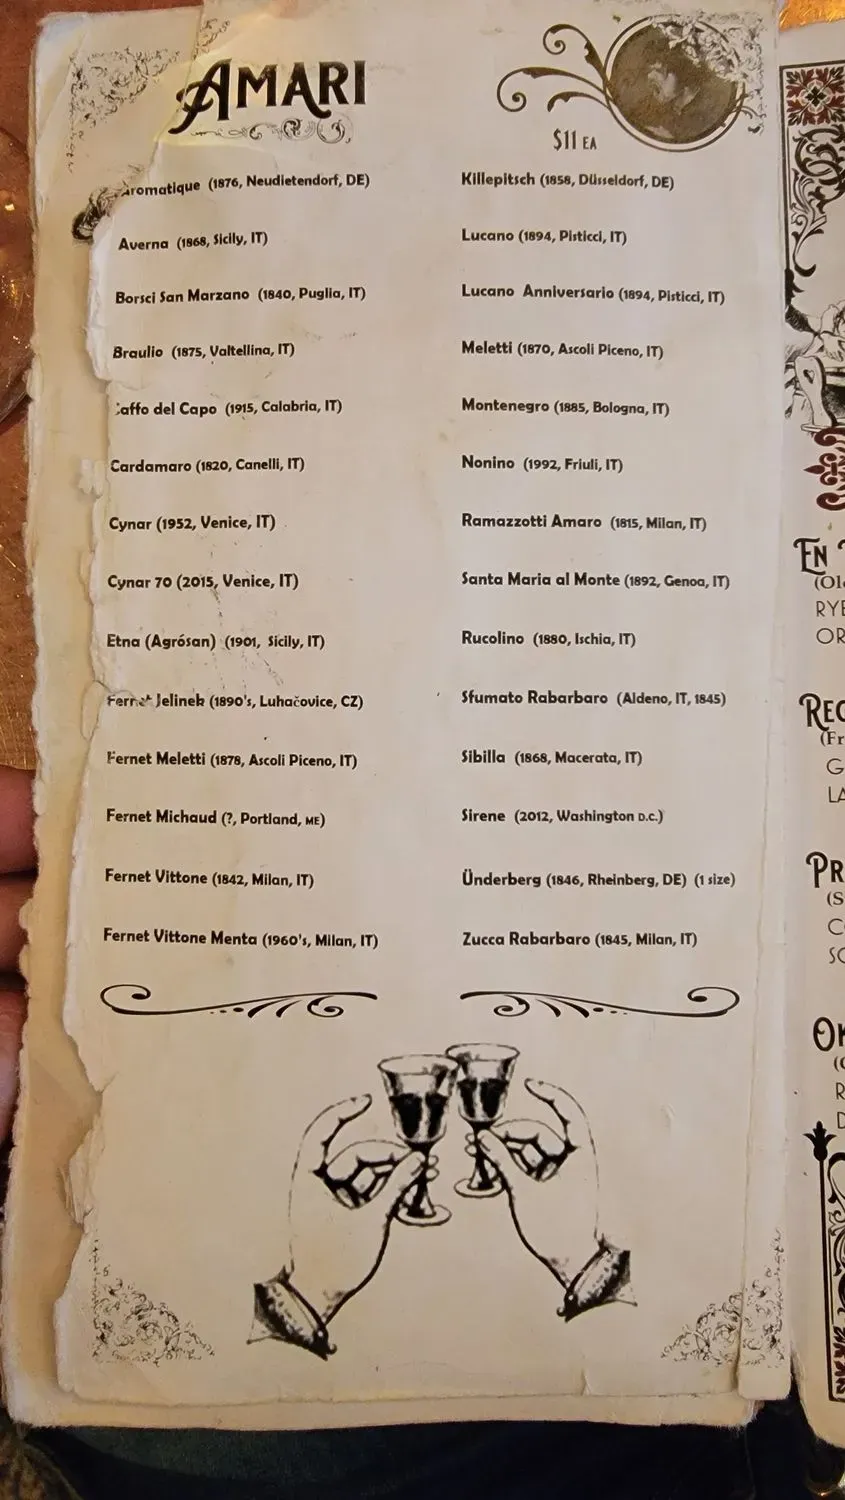 AMARI
$11 EA
Aromatique (1876, Neudietendorf, DE)
Averna (1868, Sicily, IT)
Borsci San Marzano (1840, Puglia, IT)
Braulio (1875, Valtellina, IT)
Caffo del Capo (1915, Calabria, IT)
Cardamaro (1820, Canelli, IT)
Cynar (1952, Venice, IT)
Cynar 70 (2015, Venice, IT)
Etna (Agrósan) (1901, Sicily, IT)
Fernet Jelinek (1890's, Luhačovice, CZ)
Fernet Meletti (1878, Ascoli Piceno, IT)
Fernet Michaud (?, Portland, ME)
Fernet Vittone (1842, Milan, IT)
Fernet Vittone Menta (1960's, Milan, IT)
Killepitsch (1858, Düsseldorf, DE)
Lucano (1894, Pisticci, IT)
Lucano Anniversario (1894, Pisticci, IT)
Meletti (1870, Ascoli Piceno, IT)
Montenegro (1885, Bologna, IT)
Nonino (1992, Friuli, IT)
Ramazzotti Amaro (1815, Milan, IT)
Santa Maria al Monte (1892, Genoa, IT)
Rucolino (1880, Ischia, IT)
Sfumato Rabarbaro (Aldeno, IT, 1845)
Sibilla (1868, Macerata, IT)
Sirene (2012, Washington D.C.)
Ünderberg (1846, Rheinberg, DE) (1 size)
Zucca Rabarbaro (1845, Milan, IT)
EN